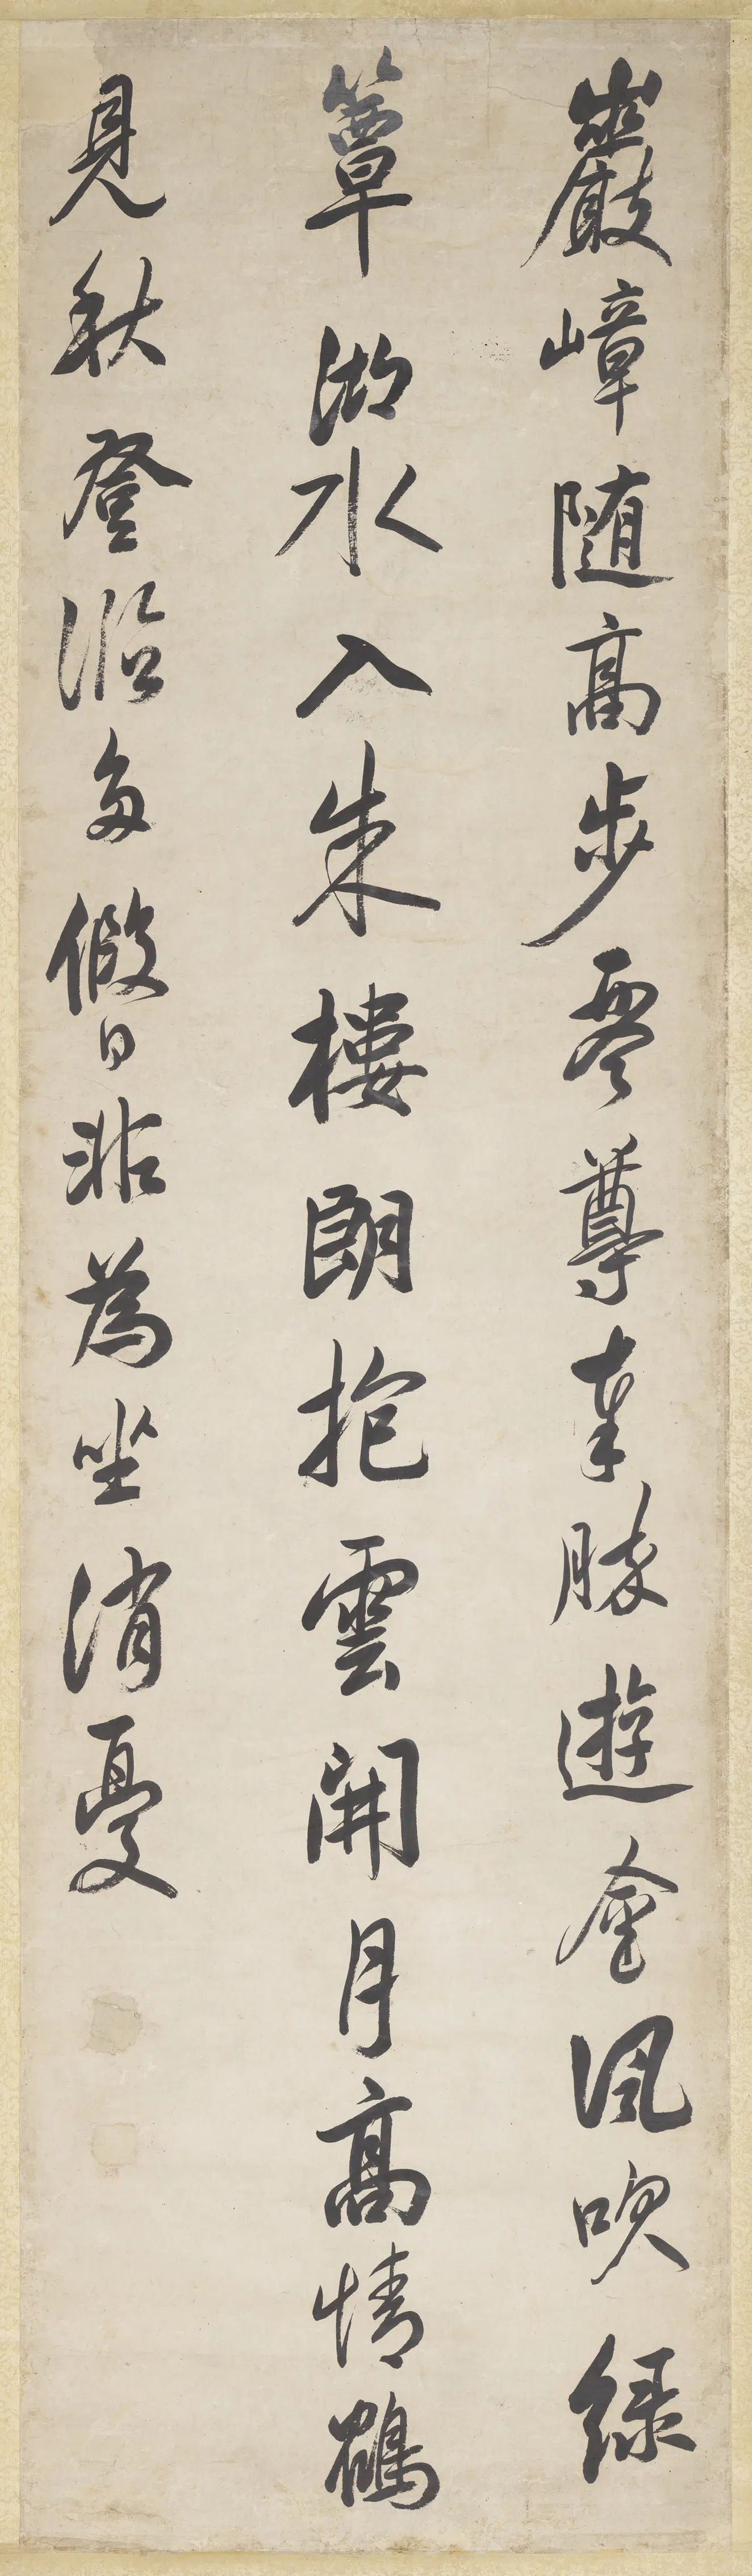 巖嶂随高步琴尊奉勝遊金風吹緑
簟湖水入朱樓朗抱雲開月高情鶴
見秋登臨多假日非為坐消憂